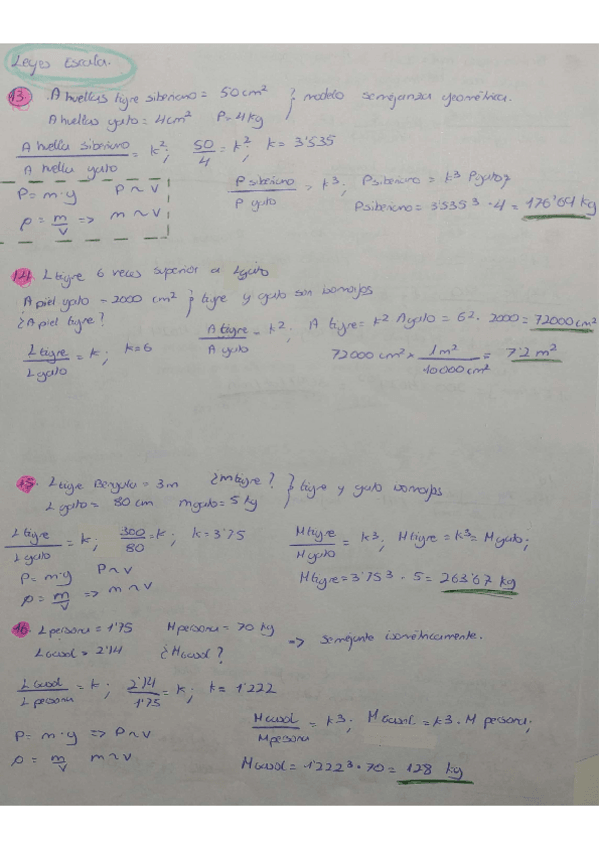 Leyes Escala.
13. A huellas tigre siberiano = 50 cm² } modelo semejanza geométrica.
A huellas gato = 4 cm² P = 4 kg
A huella siberiano / A huella gato = k²; 50/4 = k²; k = 3'535
P = m·g P ~ V
ρ = m/V => m ~ V
P siberiano / P gato = k³; P siberiano = k³ P gato;
P siberiano = 3'535³ · 4 = 176'69 kg
14. L tigre 6 veces superior a L gato
A piel gato = 2000 cm² } tigre y gato son isomorfos
¿A piel tigre?
L tigre / L gato = k; k = 6
A tigre / A gato = k²; A tigre = k² A gato = 6² · 2000 = 72000 cm²
72000 cm² × 1 m² / 10000 cm² = 7'2 m²
15. L tigre Bengala = 3m ¿m tigre? } tigre y gato isomorfos
L gato = 80 cm m gato = 5 kg
L tigre / L gato = k; 300/80 = k; k = 3'75
P = m·g P ~ V
ρ = m/V => m ~ V
M tigre / M gato = k³; M tigre = k³ = M gato;
M tigre = 3'75³ · 5 = 263'67 kg
16. L persona = 1'75 M persona = 70 kg => semejante isométricamente.
L Gasol = 2'14 ¿M Gasol?
L Gasol / L persona = k; 2'14/1'75 = k; k = 1'222
P = m·g => P ~ V
ρ = m/V m ~ V
M Gasol / M persona = k³; M Gasol = k³ · M persona;
M Gasol = 1'222³ · 70 = 128 kg